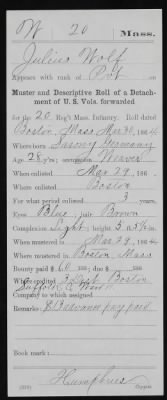 W 20 Mass.
Julius Wolf
Appears with rank of Pvt on
Muster and Descriptive Roll of a Detach-
ment of U. S. Vols. forwarded
for the 20 Reg't Mass. Infantry. Roll dated
Boston, Mass Mar 30, 1864
Where born Saxony Germany
Age 28 y'rs; occupation Weaver
When enlisted Mar 29, 186
Where enlisted Boston
For what period enlisted 3 years.
Eyes Blue; hair Brown
Complexion Light; height 5 ft. 3½ in.
When mustered in Mar 29, 1864
Where mustered in Boston, Mass
Bounty paid $60; due $
Where credited 3 Dist Boston
Suffolk Ward
Company to which assigned
Remarks: $13 advance pay paid
Book mark:
Humphries
Copyist.